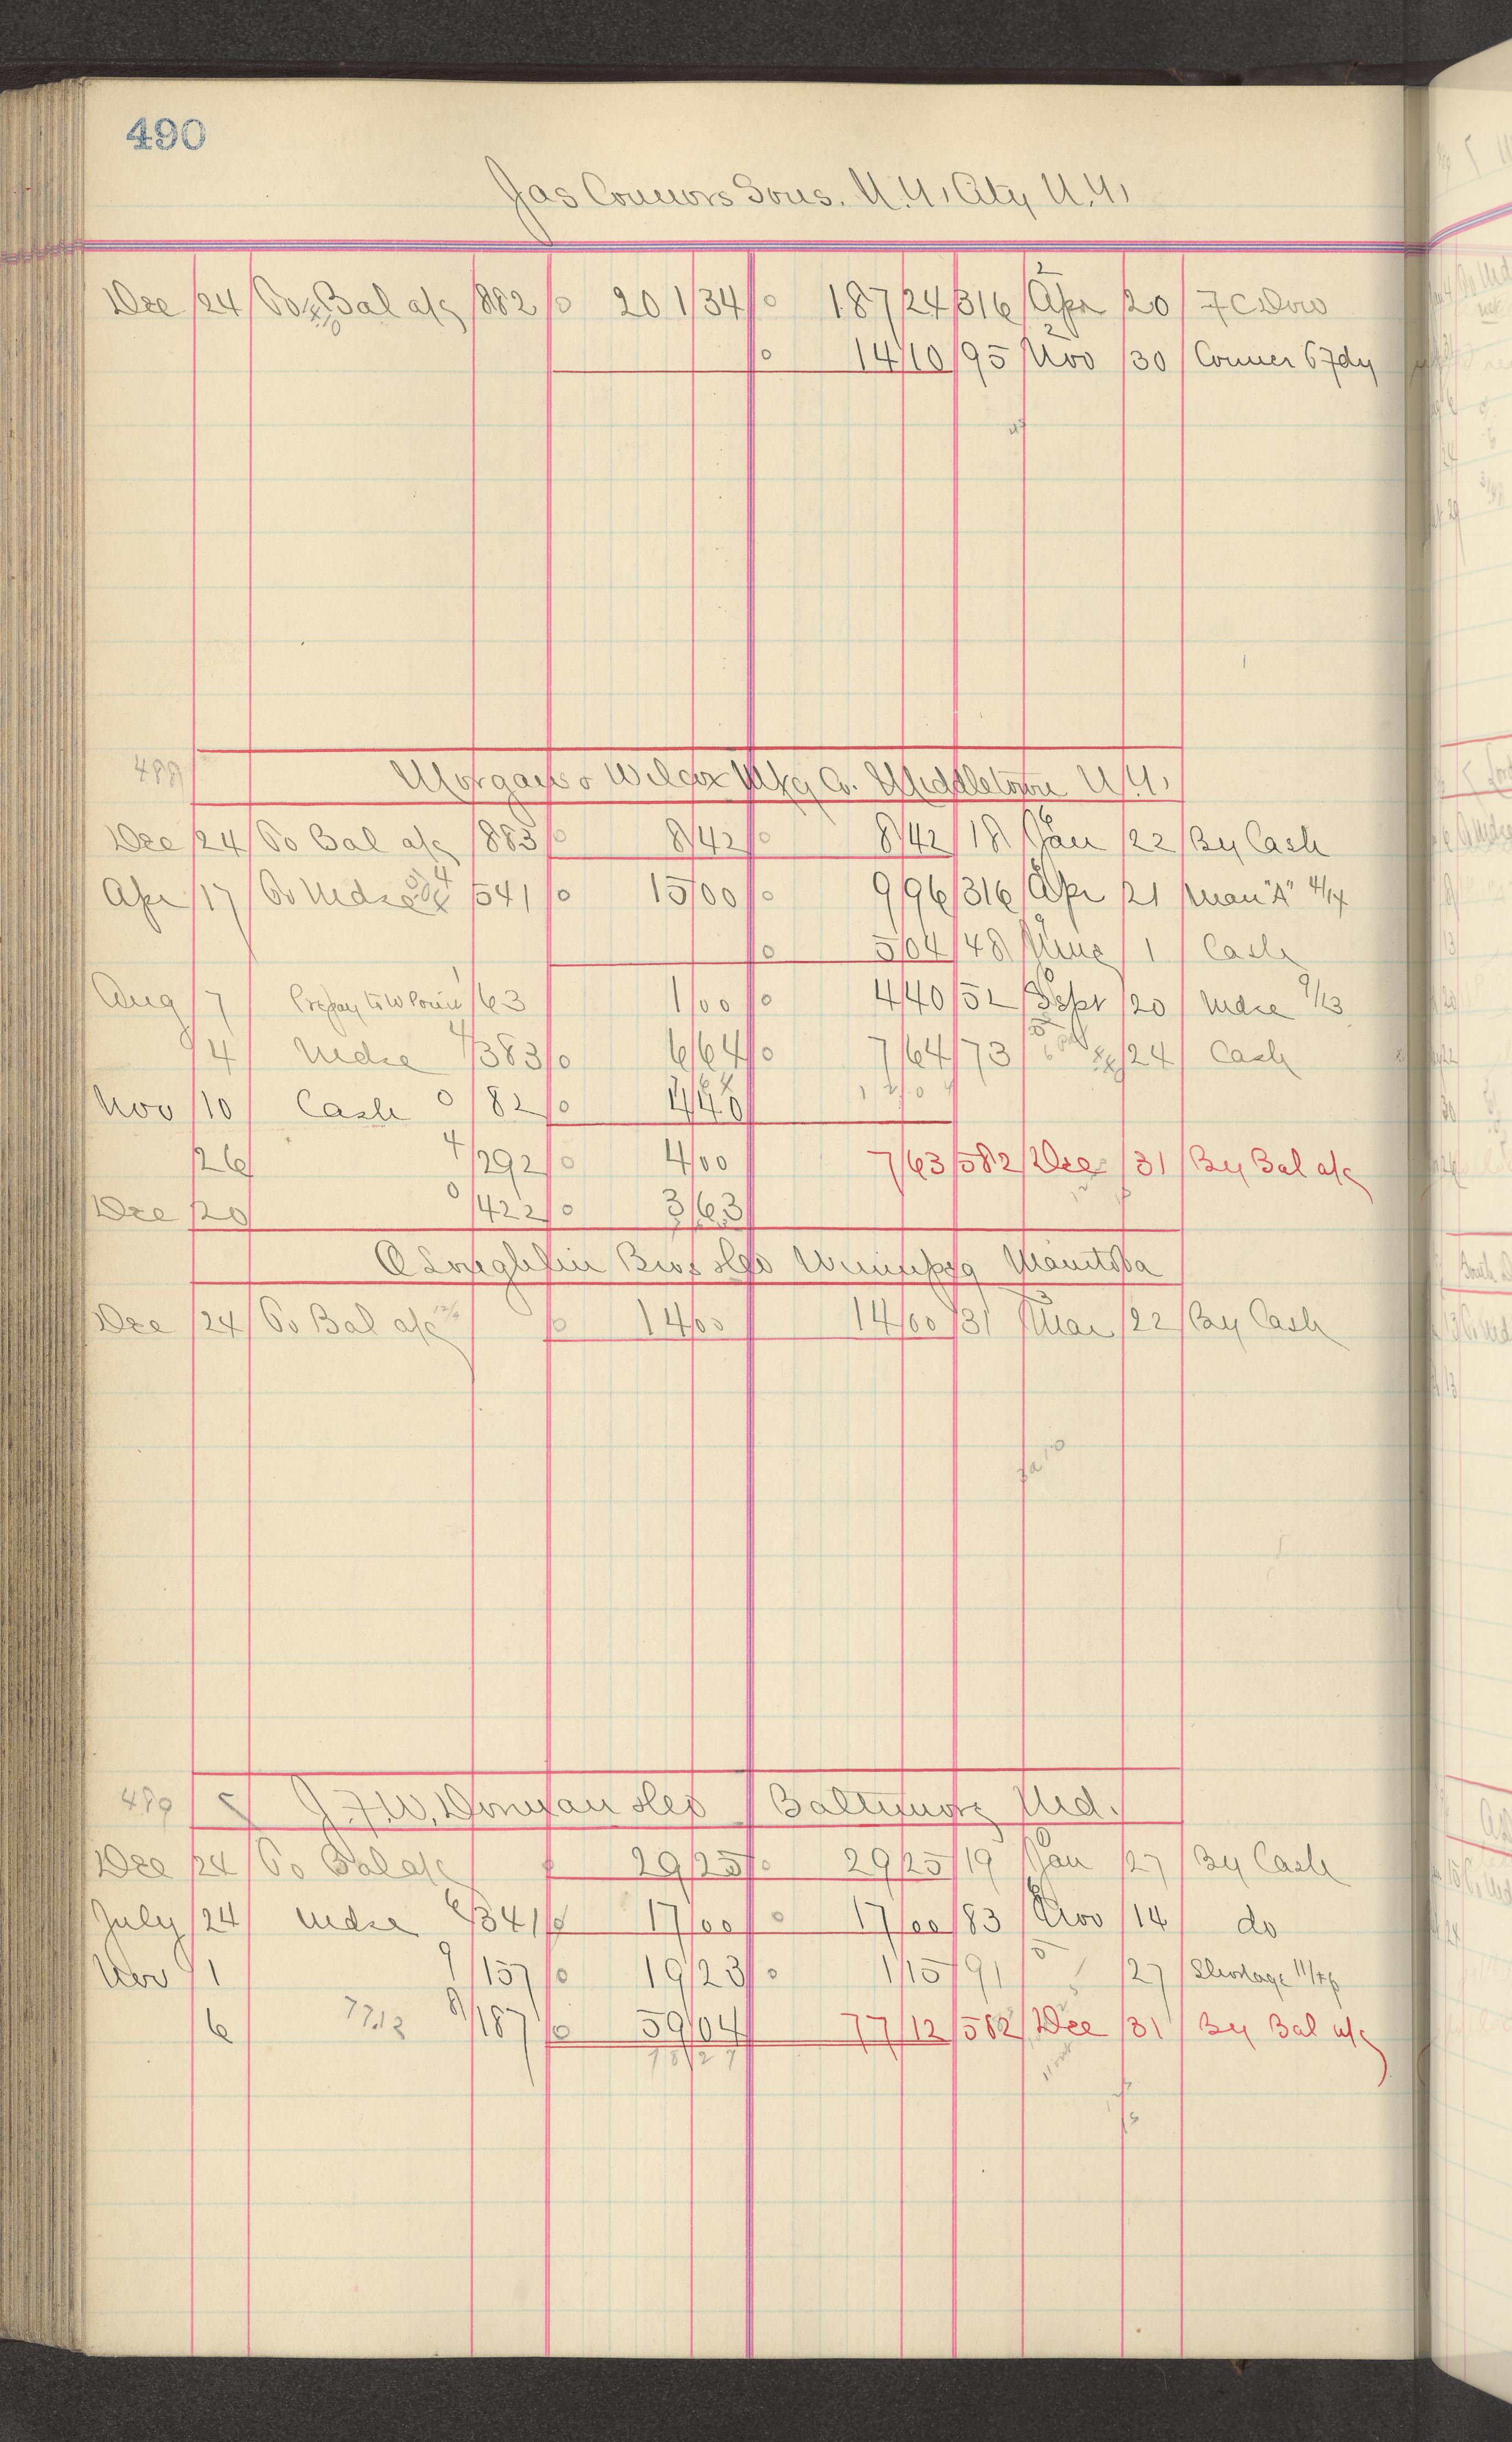 490
Jas Connors Sons. N.Y. City N.Y.
Dec 24 To Bal a/c 882 0 201 34 0 187 24 316 Apr 20 F C Dow
0 14 10 95 Nov 30 Conner Fdy
488
Morgans & Wilcox Mfg Co. Middletown N.Y.
Dec 24 To Bal a/c 883 0 8 42 0 8 42 18 Jan 22 By Cash
Apr 17 To Mdse 4 541 0 15 00 0 9 96 316 Apr 21 Man "A" 4/14
0 5 04 48 June 1 Cash
Aug 7 63 1 00 0 4 40 52 Sept 20 Mdse 9/13
4 Mdse 4 383 0 6 64 0 7 64 73 24 Cash
Nov 10 Cash 0 82 0 4 40
26 4 292 0 4 00 7 63 582 Dec 31 By Bal a/c
Dec 20 0 422 0 3 63
O Loughlin Bros &Co Winnipeg Manitoba
Dec 24 To Bal a/c 0 14 00 14 00 31 Mar 22 By Cash
489 J.F.W. Dorman &Co Baltimore Md.
Dec 24 To Bal a/c 29 25 0 29 25 19 Jan 27 By Cash
July 24 Mdse 6 341 0 17 00 0 17 00 83 Nov 14 do
Nov 1 9 157 0 19 23 0 1 15 91 27 Shortage
6 77.12 8 187 0 59 04 77 12 582 Dec 31 By Bal a/c
78 27